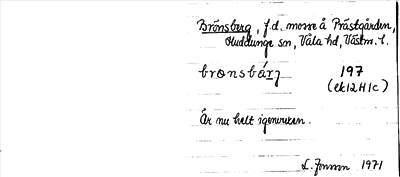 Brönsberg, f.d. mosse å Prästgården,
Huddunge sn, Våla hd, Västm. l.
bronsbárj 197
(ek12H1c)
Är nu helt igenvuxen.
L. Jonsson 1971